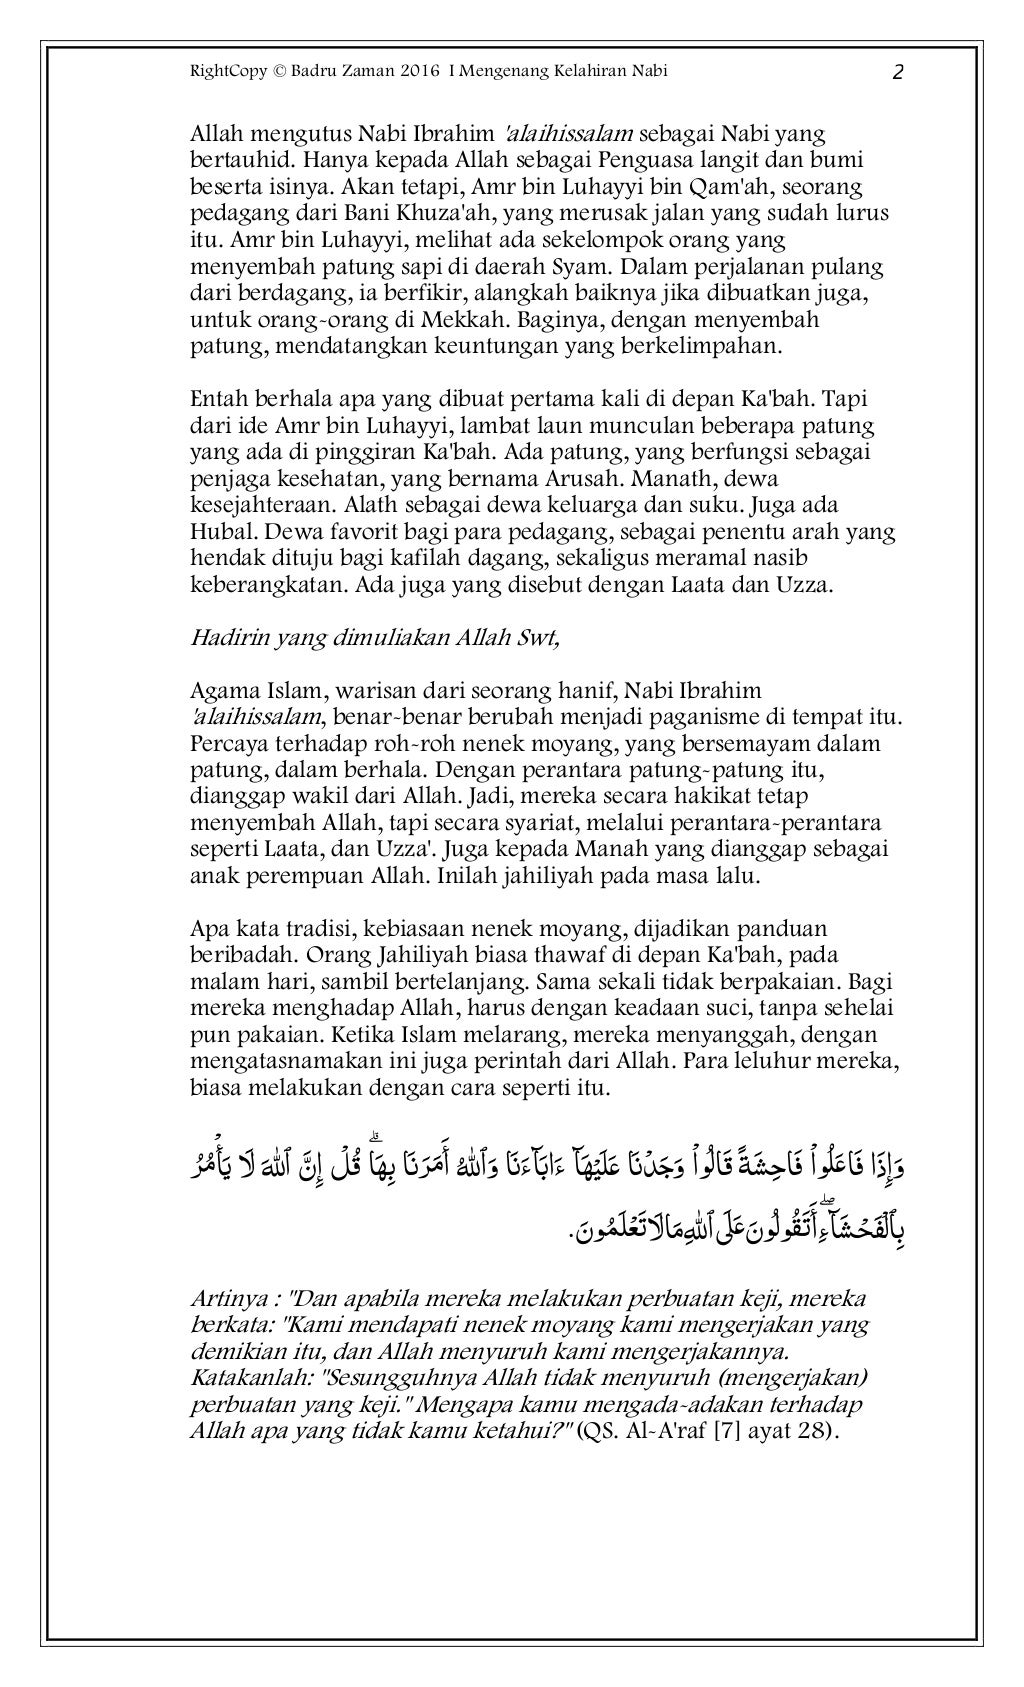 RightCopy © Badru Zaman 2016 I Mengenang Kelahiran Nabi 2
Allah mengutus Nabi Ibrahim 'alaihissalam sebagai Nabi yang
bertauhid. Hanya kepada Allah sebagai Penguasa langit dan bumi
beserta isinya. Akan tetapi, Amr bin Luhayyi bin Qam'ah, seorang
pedagang dari Bani Khuza'ah, yang merusak jalan yang sudah lurus
itu. Amr bin Luhayyi, melihat ada sekelompok orang yang
menyembah patung sapi di daerah Syam. Dalam perjalanan pulang
dari berdagang, ia berfikir, alangkah baiknya jika dibuatkan juga,
untuk orang-orang di Mekkah. Baginya, dengan menyembah
patung, mendatangkan keuntungan yang berkelimpahan.
Entah berhala apa yang dibuat pertama kali di depan Ka'bah. Tapi
dari ide Amr bin Luhayyi, lambat laun munculan beberapa patung
yang ada di pinggiran Ka'bah. Ada patung, yang berfungsi sebagai
penjaga kesehatan, yang bernama Arusah. Manath, dewa
kesejahteraan. Alath sebagai dewa keluarga dan suku. Juga ada
Hubal. Dewa favorit bagi para pedagang, sebagai penentu arah yang
hendak dituju bagi kafilah dagang, sekaligus meramal nasib
keberangkatan. Ada juga yang disebut dengan Laata dan Uzza.
Hadirin yang dimuliakan Allah Swt,
Agama Islam, warisan dari seorang hanif, Nabi Ibrahim
'alaihissalam, benar-benar berubah menjadi paganisme di tempat itu.
Percaya terhadap roh-roh nenek moyang, yang bersemayam dalam
patung, dalam berhala. Dengan perantara patung-patung itu,
dianggap wakil dari Allah. Jadi, mereka secara hakikat tetap
menyembah Allah, tapi secara syariat, melalui perantara-perantara
seperti Laata, dan Uzza'. Juga kepada Manah yang dianggap sebagai
anak perempuan Allah. Inilah jahiliyah pada masa lalu.
Apa kata tradisi, kebiasaan nenek moyang, dijadikan panduan
beribadah. Orang Jahiliyah biasa thawaf di depan Ka'bah, pada
malam hari, sambil bertelanjang. Sama sekali tidak berpakaian. Bagi
mereka menghadap Allah, harus dengan keadaan suci, tanpa sehelai
pun pakaian. Ketika Islam melarang, mereka menyanggah, dengan
mengatasnamakan ini juga perintah dari Allah. Para leluhur mereka,
biasa melakukan dengan cara seperti itu.
وَإِذَا فَعَلُوا۟ فَٰحِشَةً قَالُوا۟ وَجَدْنَا عَلَيْهَآ ءَابَآءَنَا وَٱللَّهُ أَمَرَنَا بِهَا ۗ قُلْ إِنَّ ٱللَّهَ لَا يَأْمُرُ
بِٱلْفَحْشَآءِ ۖ أَتَقُولُونَ عَلَى ٱللَّهِ مَا لَا تَعْلَمُونَ.
Artinya : "Dan apabila mereka melakukan perbuatan keji, mereka
berkata: "Kami mendapati nenek moyang kami mengerjakan yang
demikian itu, dan Allah menyuruh kami mengerjakannya.
Katakanlah: "Sesungguhnya Allah tidak menyuruh (mengerjakan)
perbuatan yang keji." Mengapa kamu mengada-adakan terhadap
Allah apa yang tidak kamu ketahui?" (QS. Al-A'raf [7] ayat 28).